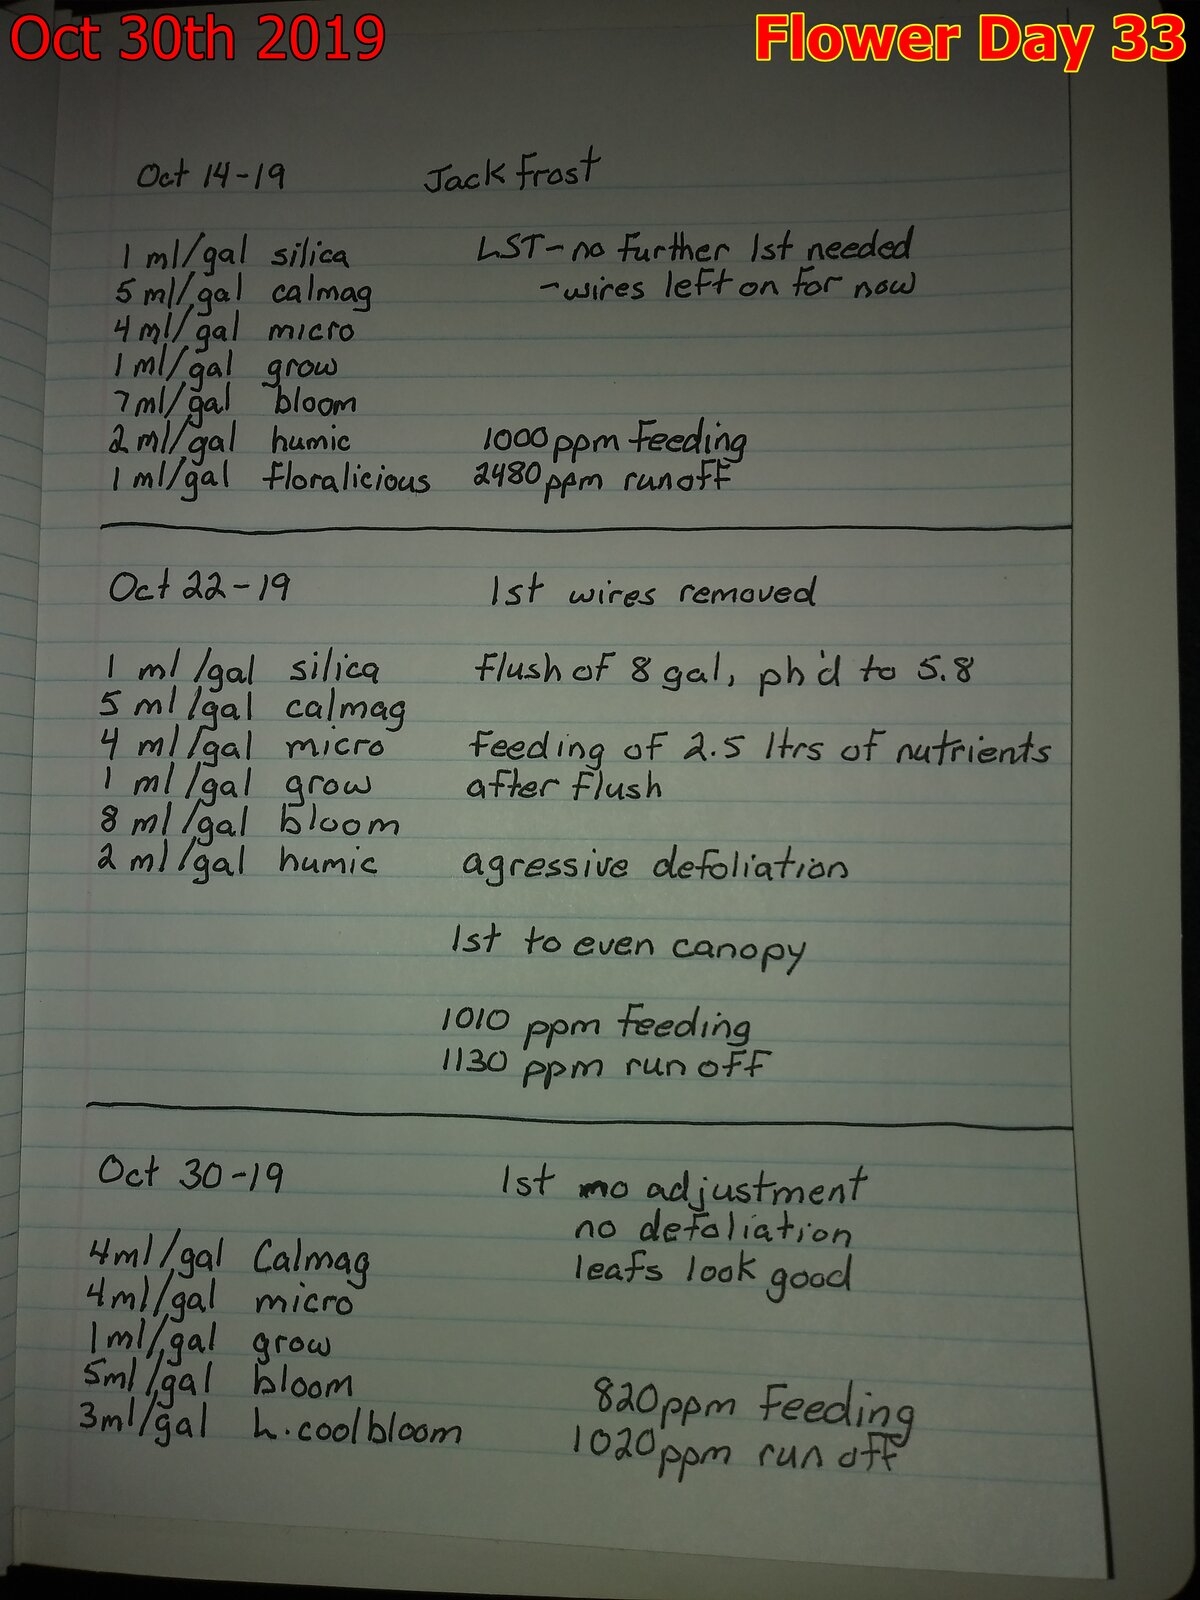 Oct 30th 2019
Flower Day 33
Oct 14-19 Jack Frost
1 ml/gal silica LST-no further lst needed
5 ml/gal calmag -wires left on for now
4 ml/gal micro
1 ml/gal grow
7 ml/gal bloom
2 ml/gal humic 1000 ppm feeding
1 ml/gal floralicious 2480 ppm runoff
Oct 22-19 lst wires removed
1 ml/gal silica flush of 8 gal, ph'd to 5.8
5 ml/gal calmag
4 ml/gal micro feeding of 2.5 ltrs of nutrients
1 ml/gal grow after flush
8 ml/gal bloom
2 ml/gal humic agressive defoliation
lst to even canopy
1010 ppm feeding
1130 ppm run off
Oct 30-19 lst no adjustment
no defoliation
4ml/gal Calmag leafs look good
4ml/gal micro
1ml/gal grow
5ml/gal bloom 820ppm feeding
3ml/gal L.coolbloom 1020ppm run off